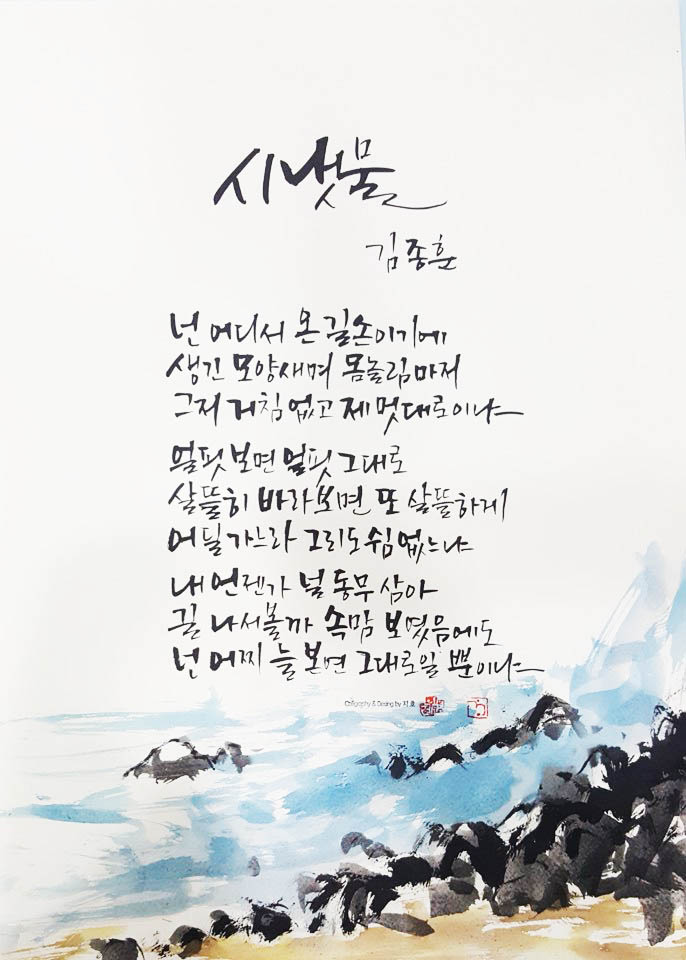 시냇물
김종훈
넌 어디서 온 길손이기에
생긴 모양새며 몸놀림마저
그저 거침 없고 제 멋대로이냐
얼핏 보면 얼핏 그대로
살뜰히 바라보면 또 살뜰하게
어딜 가느라 그리도 쉼 없느냐
내 언젠가 널 동무 삼아
길 나서볼까 속맘 보였음에도
넌 어찌 늘 본면 그대로일 뿐이냐
Calligraphy & Desing by 지효